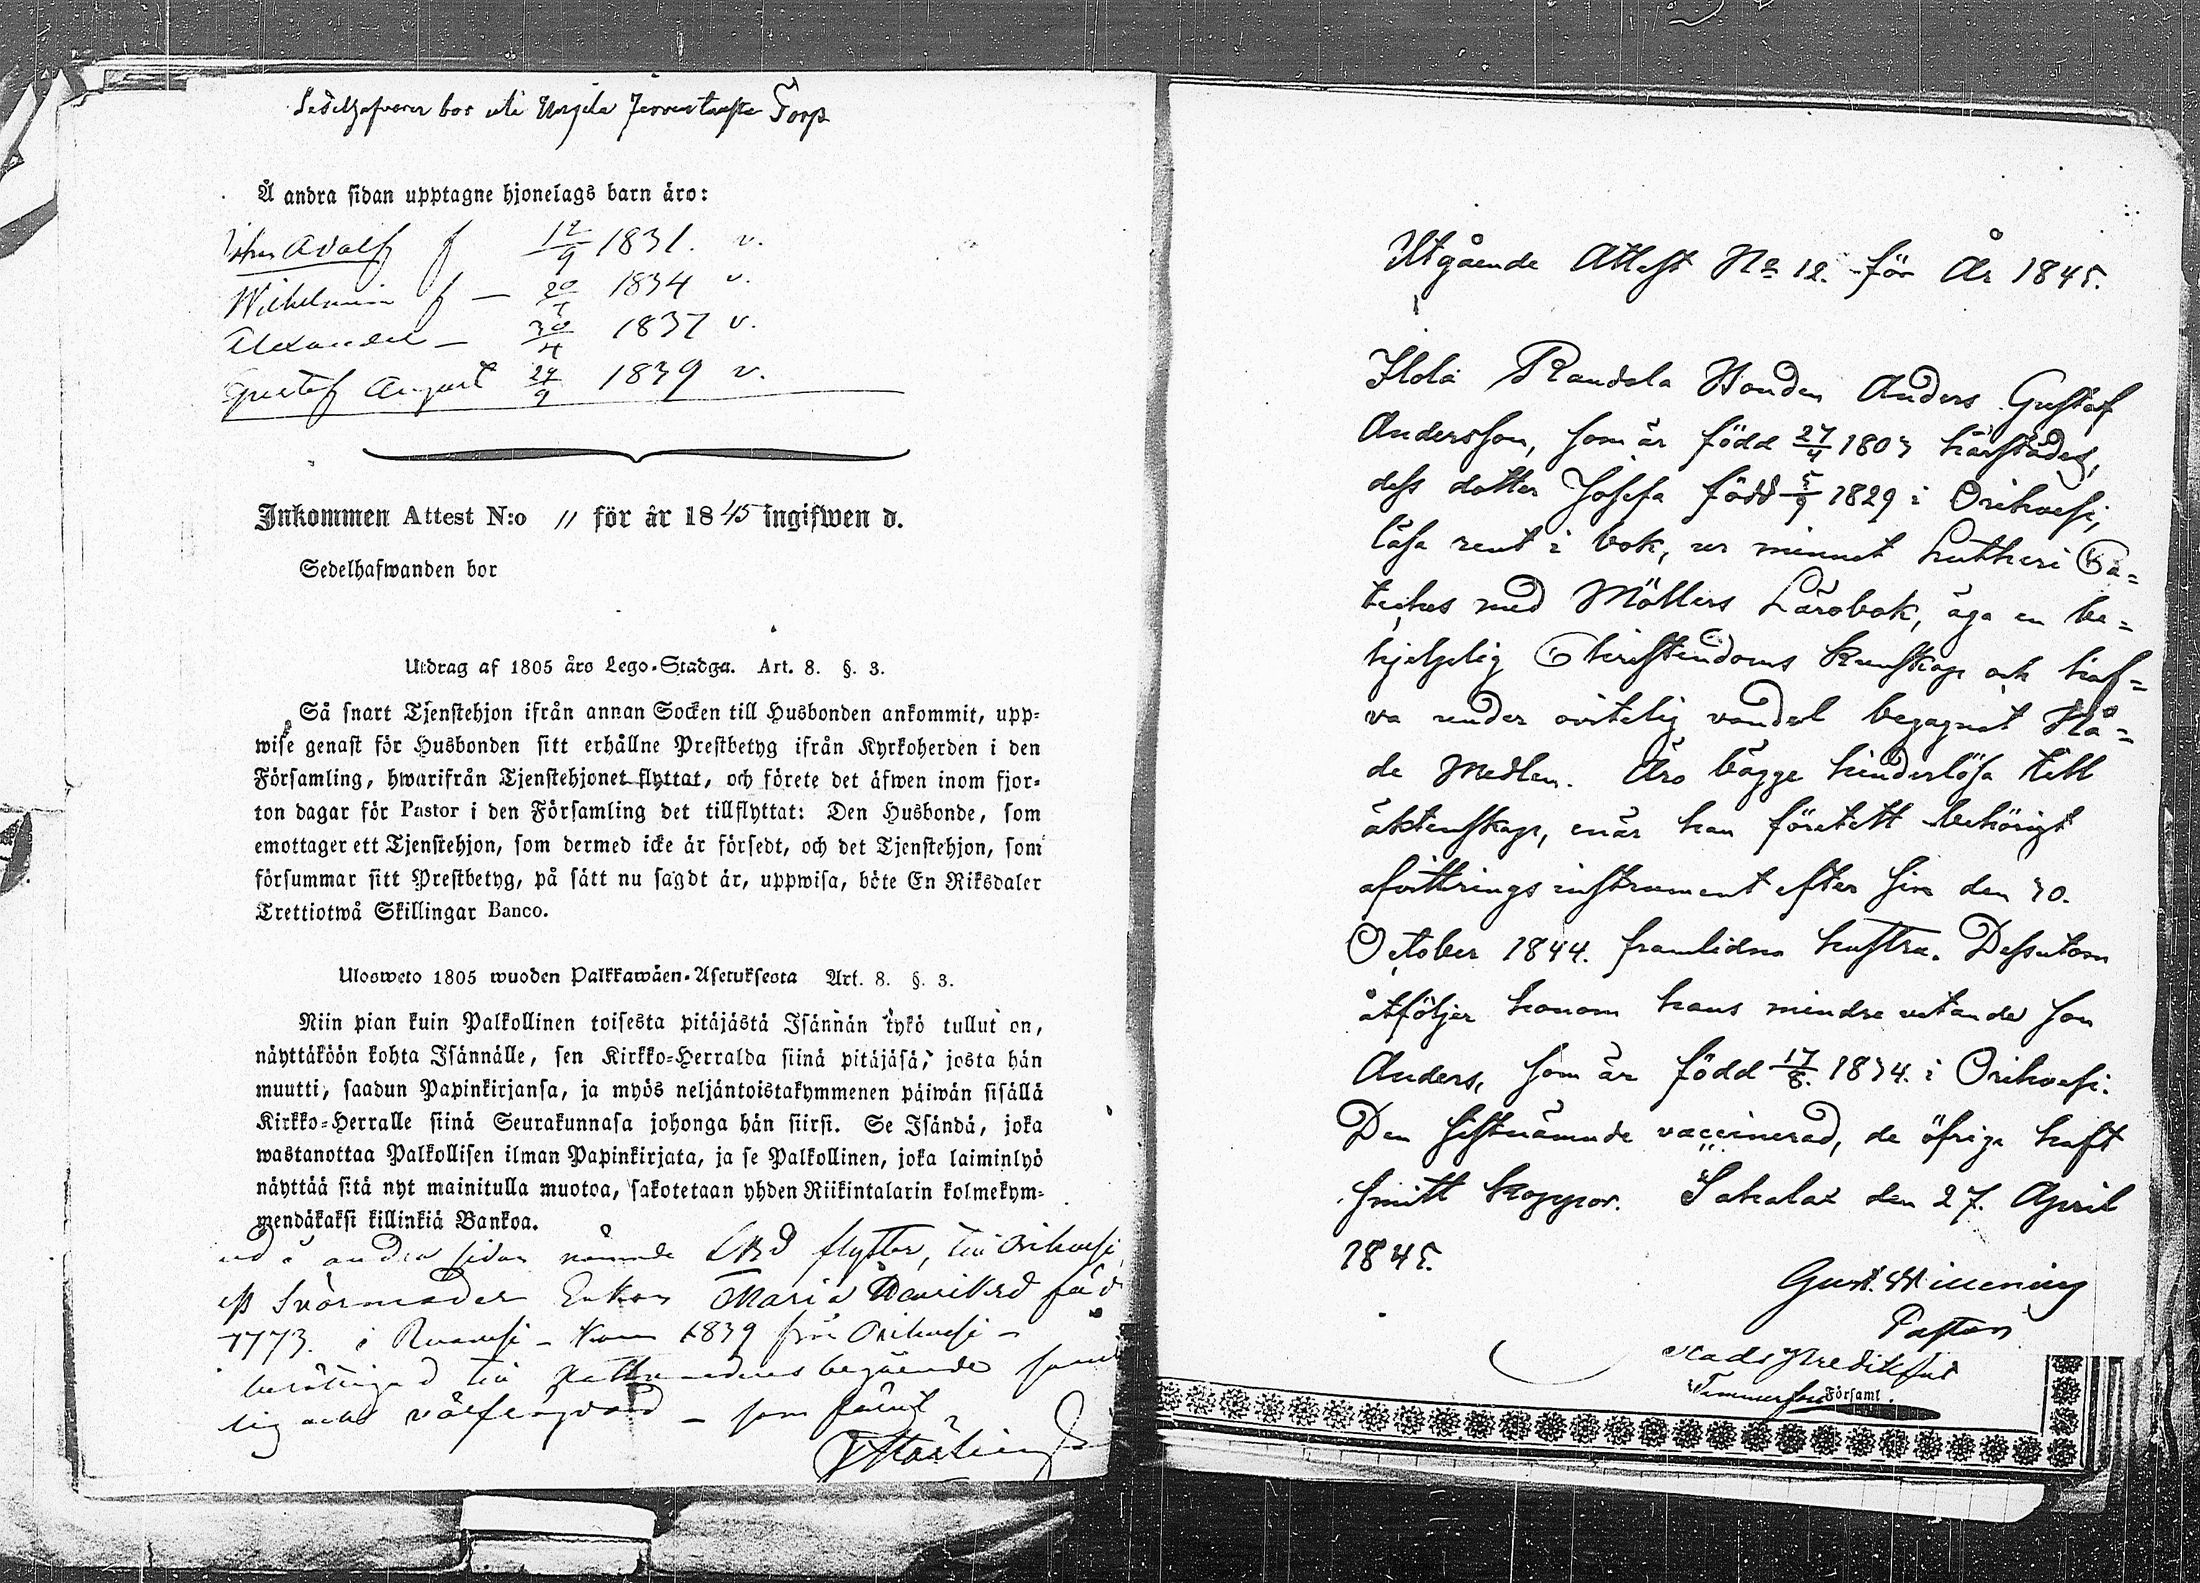 Sedelhafvaren bor uti Torp
Å andra sidan upptagne hjonelags barn äro:
Adolf f 12/9 1831. v.
Wilhelmin f — 1834 v.
Alexander — 30/4 1837 v.
Gustaf August 29/9 1839 v.
Inkommen Attest N:o 11 för år 1845 ingifwen d.
Sedelhafwanden bor
Utdrag af 1805 års Lego-Stadga. Art. 8. §. 3.
Så snart Tjenstehjon ifrån annan Socken till Husbonden ankommit, upp-
wise genast för Husbonden sitt erhållne Prestbetyg ifrån Kyrkoherden i den
Församling, hwarifrån Tjenstehjonet flyttat, och förete det äfwen inom fjor-
ton dagar för Pastor i den Församling det tillflyttat: Den Husbonde, som
emottager ett Tjenstehjon, som dermed icke är försedt, och det Tjenstehjon, som
försummar sitt Prestbetyg, på sätt nu sagdt är, uppwisa, böte En Riksdaler
Trettiotwå Skillingar Banco.
Ulosweto 1805 wuoden Palkkawäen-Asetuksesta Art. 8. §. 3.
Niin pian kuin Palkollinen toisesta pitäjästä Isännän tykö tullut on,
näyttäköön kohta Isännälle, sen Kirkko-Herralda siinä pitäjäsä, josta hän
muutti, saadun Papinkirjansa, ja myös neljäntoistakymmenen päiwän sisällä
Kirkko-Herralle siinä Seurakunnasa johonga hän siirsi. Se Isändä, joka
wastanottaa Palkollisen ilman Papinkirjata, ja se Palkollinen, joka laiminlyö
näyttää sitä nyt mainitulla muotoa, sakotetaan yhden Riikintalarin kolmekym-
mendäkaksi killinkiä Bankoa.
å andra sidan nämnde flyttar, till Orihvesi
Svärmoder Enkan Maria Henriksd född
1773. i Ruovesi — kom 1839 från Orihvesi —
berättigad till nattvardens begående
— som förut
Utgående Attest No 12. för År 1845.
Ilola Randala Bonden Anders Gustaf
Andersson, som är född 27/4 1803 härstädes,
dess dotter Josefa född 5/9 1829 i Orihvesi,
läsa rent i bok, ur minnet Lutheri Ca-
teches med Möllers Lärobok, äga en be-
hjelplig Christendoms kunskap och haf-
va under ovitelig vandel begagnat Nå-
de Medlen. Äro bägge hinderlösa till
äktenskap, enär han företett behörigt
afvittringsinstrument efter sin den 30.
October 1844. framlidna hustru. Dessutom
åtföljer honom hans mindre vetande son
Anders, som är född 17/8. 1834. i Orihvesi.
Den sistnämnde vaccinerad, de öfriga haft
smitt koppor. Sahalax den 27. April
1845.
Gust.
Pastor
Församl.